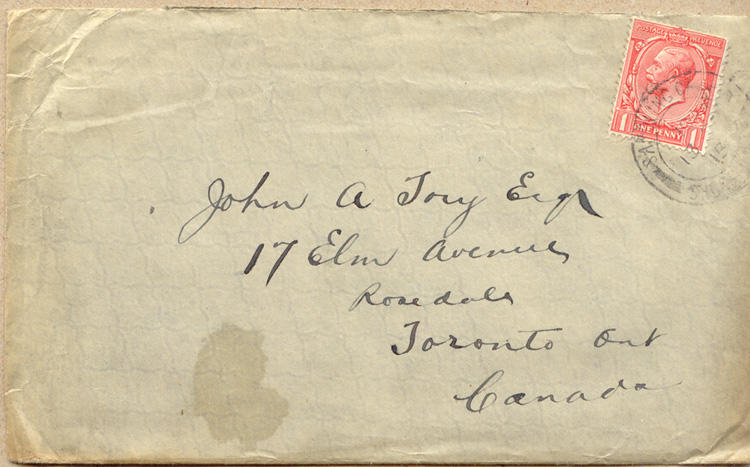 POSTAGE REVENUE
1 ONE PENNY 1
John A Tory Esqr
17 Elm Avenue
Rosedale
Toronto Ont
Canada